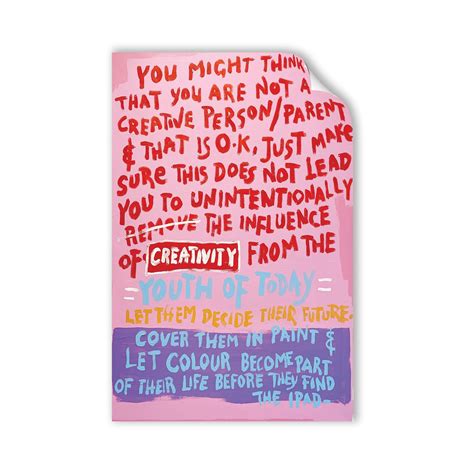 YOU MIGHT THINK
THAT YOU ARE NOT A
CREATIVE PERSON/PARENT
& THAT IS O.K, JUST MAKE
SURE THIS DOES NOT LEAD
YOU TO UNINTENTIONALLY
REMOVE THE INFLUENCE
OF CREATIVITY FROM THE
=YOUTH OF TODAY=
LET THEM DECIDE THEIR FUTURE.
COVER THEM IN PAINT &
LET COLOUR BECOME PART
OF THEIR LIFE BEFORE THEY FIND
THE IPAD-